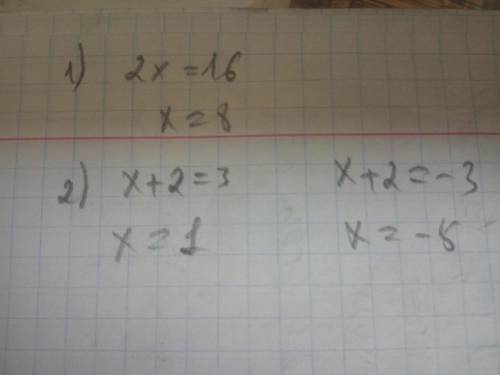 1) 2x=16
x=8
2) x+2=3 x+2=-3
x=1 x=-5